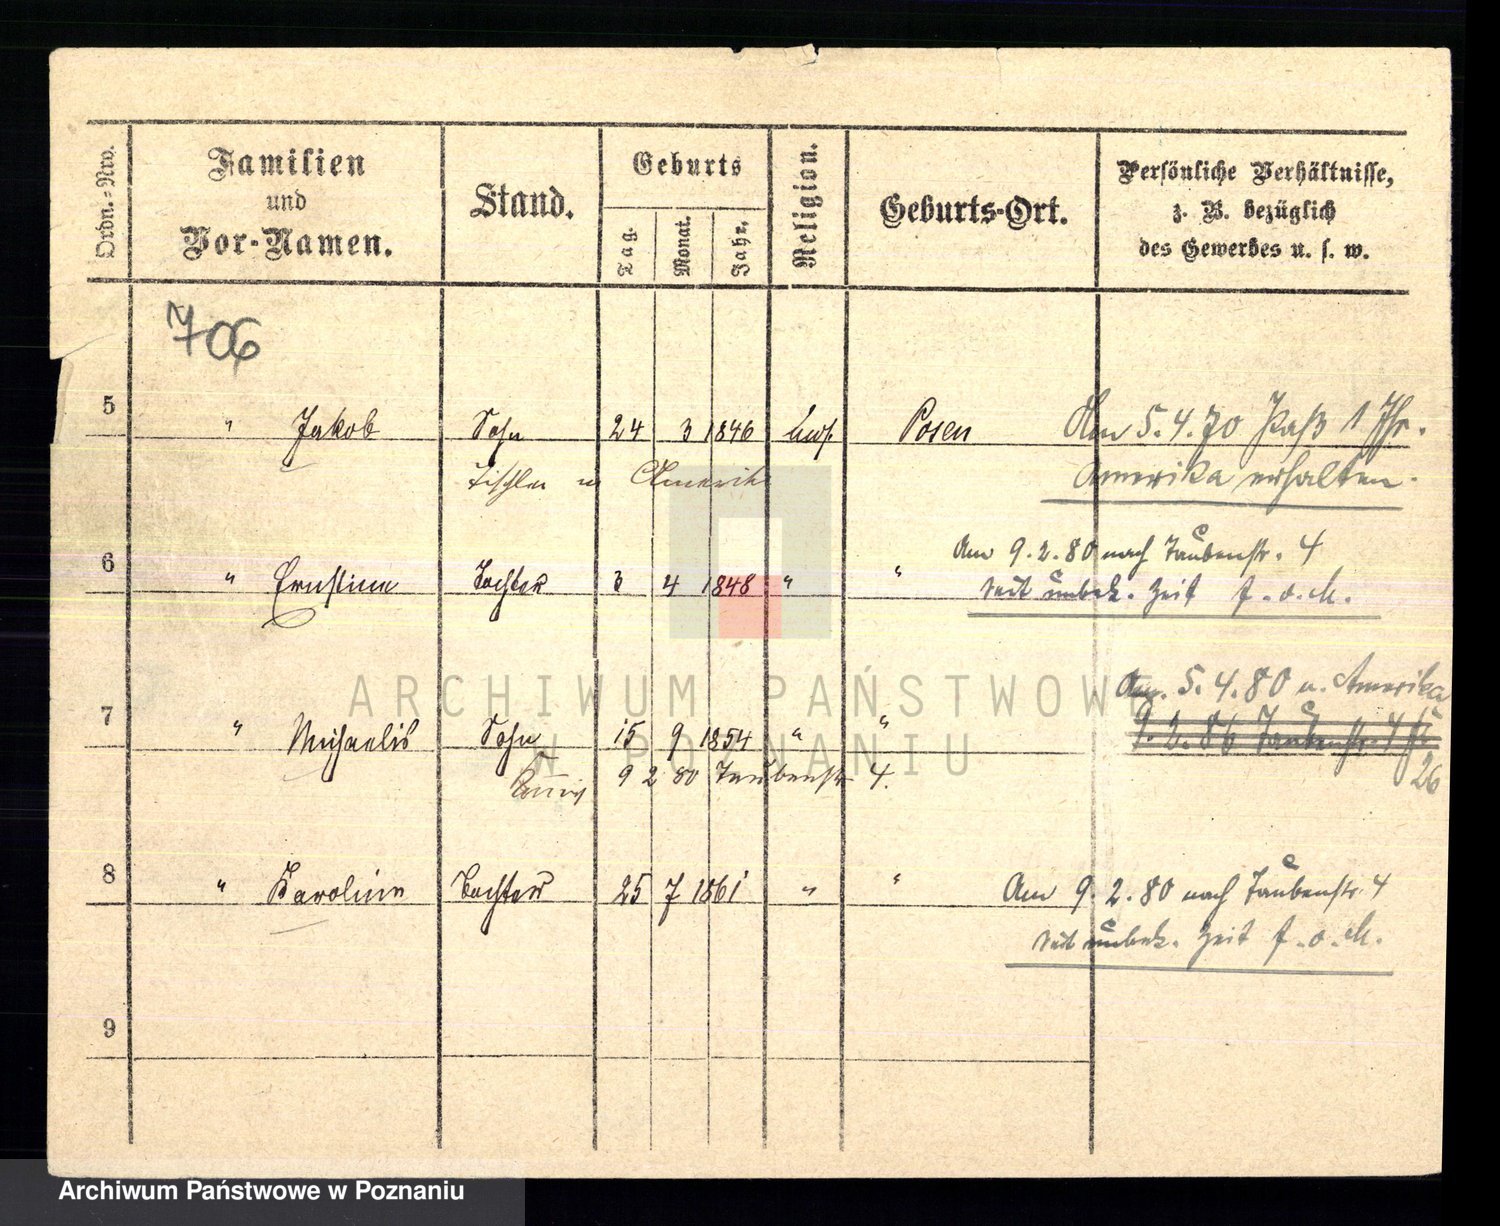 Ordn.-Nro.
Familien
und
Vor-Namen.
Stand.
Geburts
Tag.
Monat.
Jahr.
Religion.
Geburts-Ort.
Persönliche Verhältnisse,
z. B. bezüglich
des Gewerbes u. s. w.
706
5 " Jakob Sohn 24 3 1846 Posen Am 5.4.70 Paß 1 Jhr.
Tischler n Amerika
Amerika erhalten.
Am 9.2.80 nach Taubenstr. 4
6 " Ernstine Tochter 3 4 1848 " " seit unbek. Zeit f.o.M.
Am. 5.4.80 n. Amerika
7 " Michaelis Sohn 15 9 1854 " " 9.2.86 Taubenstr. 4
9 2 80 Taubenstr 4.
26
8 " Karoline Tochter 25 7 1861 " " Am 9.2.80 nach Taubenstr. 4
seit unbek. Zeit f.o.M.
9
ARCHIWUM PAŃSTWOWE
W POZNANIU
Archiwum Państwowe w Poznaniu